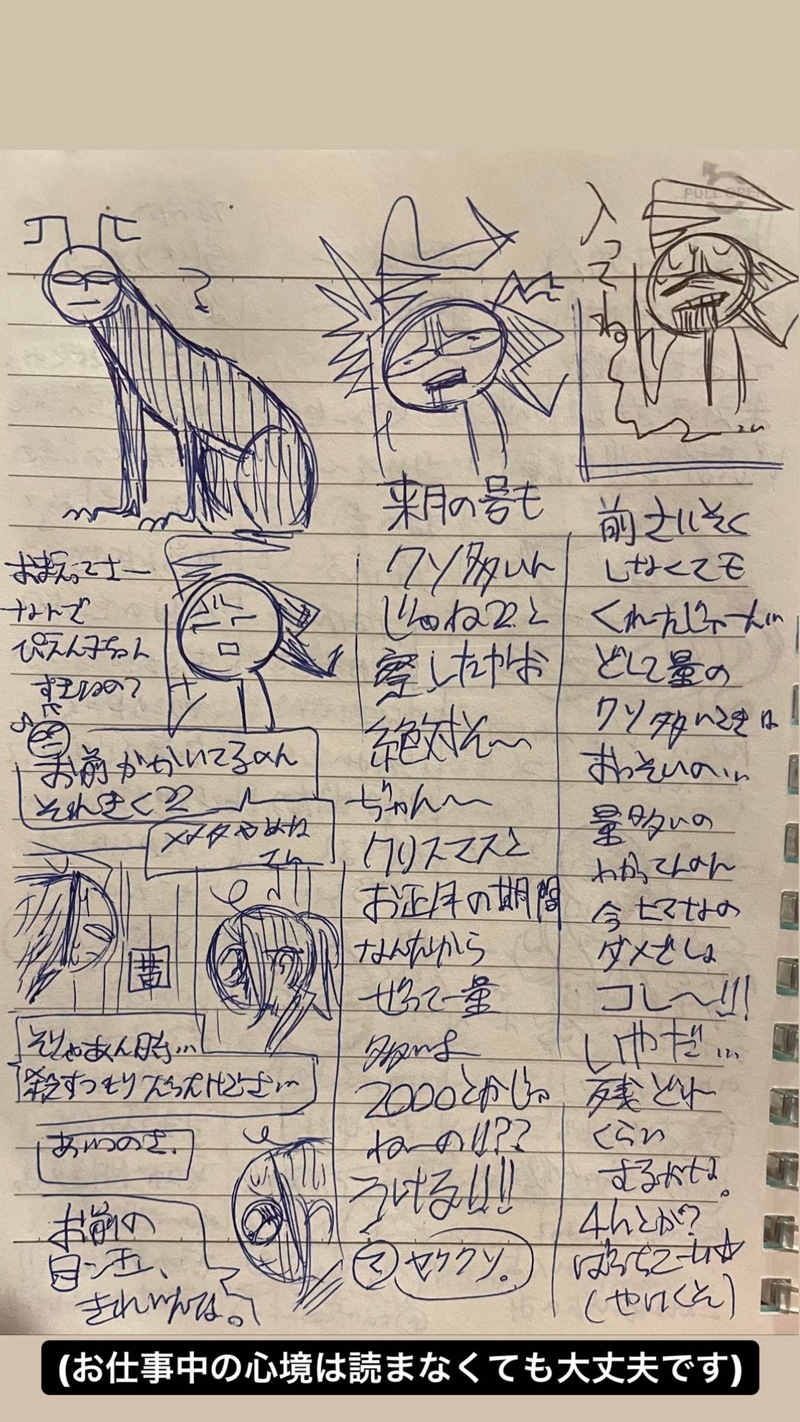 入ってね
おまえってさー
なんで
ぴえん子ちゃん
すきなの？
お前がかいてるのん
それきくママ
メメタやめね
昔
そりゃあん時…
殺すつもりだったけどさ…
あいつのさ、
お前の
目ン玉、
きれいんだな。
来月の号も
クソ多いん
じゃねママと
察したがお
絶対そ〜
ぢゃん〜
クリスマスと
お正月の期間
なんだから
ぜってー量
多いよ
2000とかじゃ
ねーの!!??
うける!!!!
ヤケクソ。
前さいそく
しなくても
くれたじゃーん…
どして量の
クソ多いときは
おっそいの…
量多いの
わかってんのん
今セてなの
ダメでしょ
コレ〜!!!
いやだ…
残どれ
くらい
するかな。
4hとか？
(やけくそ)
(お仕事中の心境は読まなくても大丈夫です)